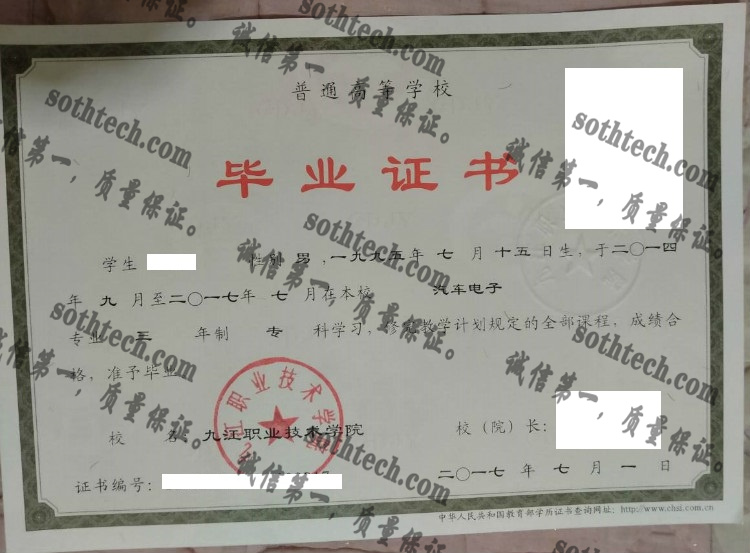 普通高等学校
毕业证书
学生 性别 男,一九九五年 七 月 十五 日生,于二〇一四
年 九 月至二〇一七年 七 月在本校 汽车电子
专业 三 年制 专 科学习,修完教学计划规定的全部课程,成绩合
格,准予毕业
校 名 九江职业技术学院
校(院)长:
二〇一七 年 七 月 一 日
证书编号:
中华人民共和国教育部学历证书查询网址:http://www.chsi.com.cn
九江职业技术学院
sothtech.com
诚信第一,质量保证。
sothtech.com
诚信第一,质量保证。
sothtech.com
诚信第一,质量保证。
sothtech.com
诚信第一,质量保证。
sothtech.com
诚信第一,质量保证。
sothtech.com
诚信第一,质量保证。
sothtech.com
诚信第一,质量保证。